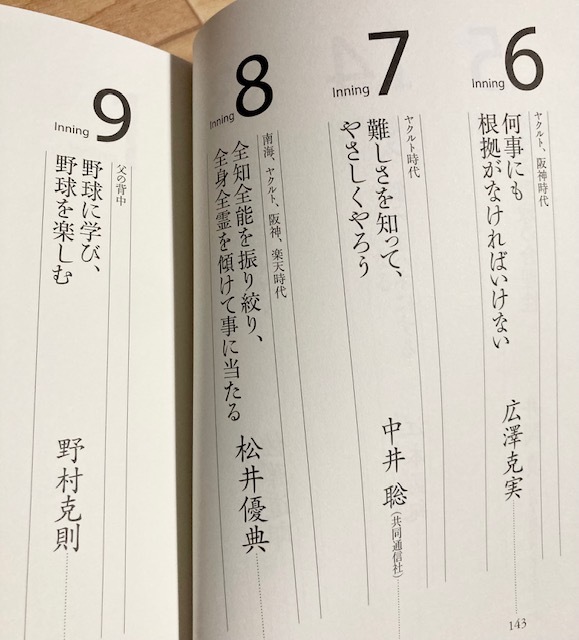 Inning 6
ヤクルト、阪神時代
何事にも
根拠がなければいけない
広澤克実
143
Inning 7
ヤクルト時代
難しさを知って、
やさしくやろう
中井 聡（共同通信社）
Inning 8
南海、ヤクルト、阪神、楽天時代
全知全能を振り絞り、
全身全霊を傾けて事に当たる
松井優典
Inning 9
父の背中
野球に学び、
野球を楽しむ
野村克則